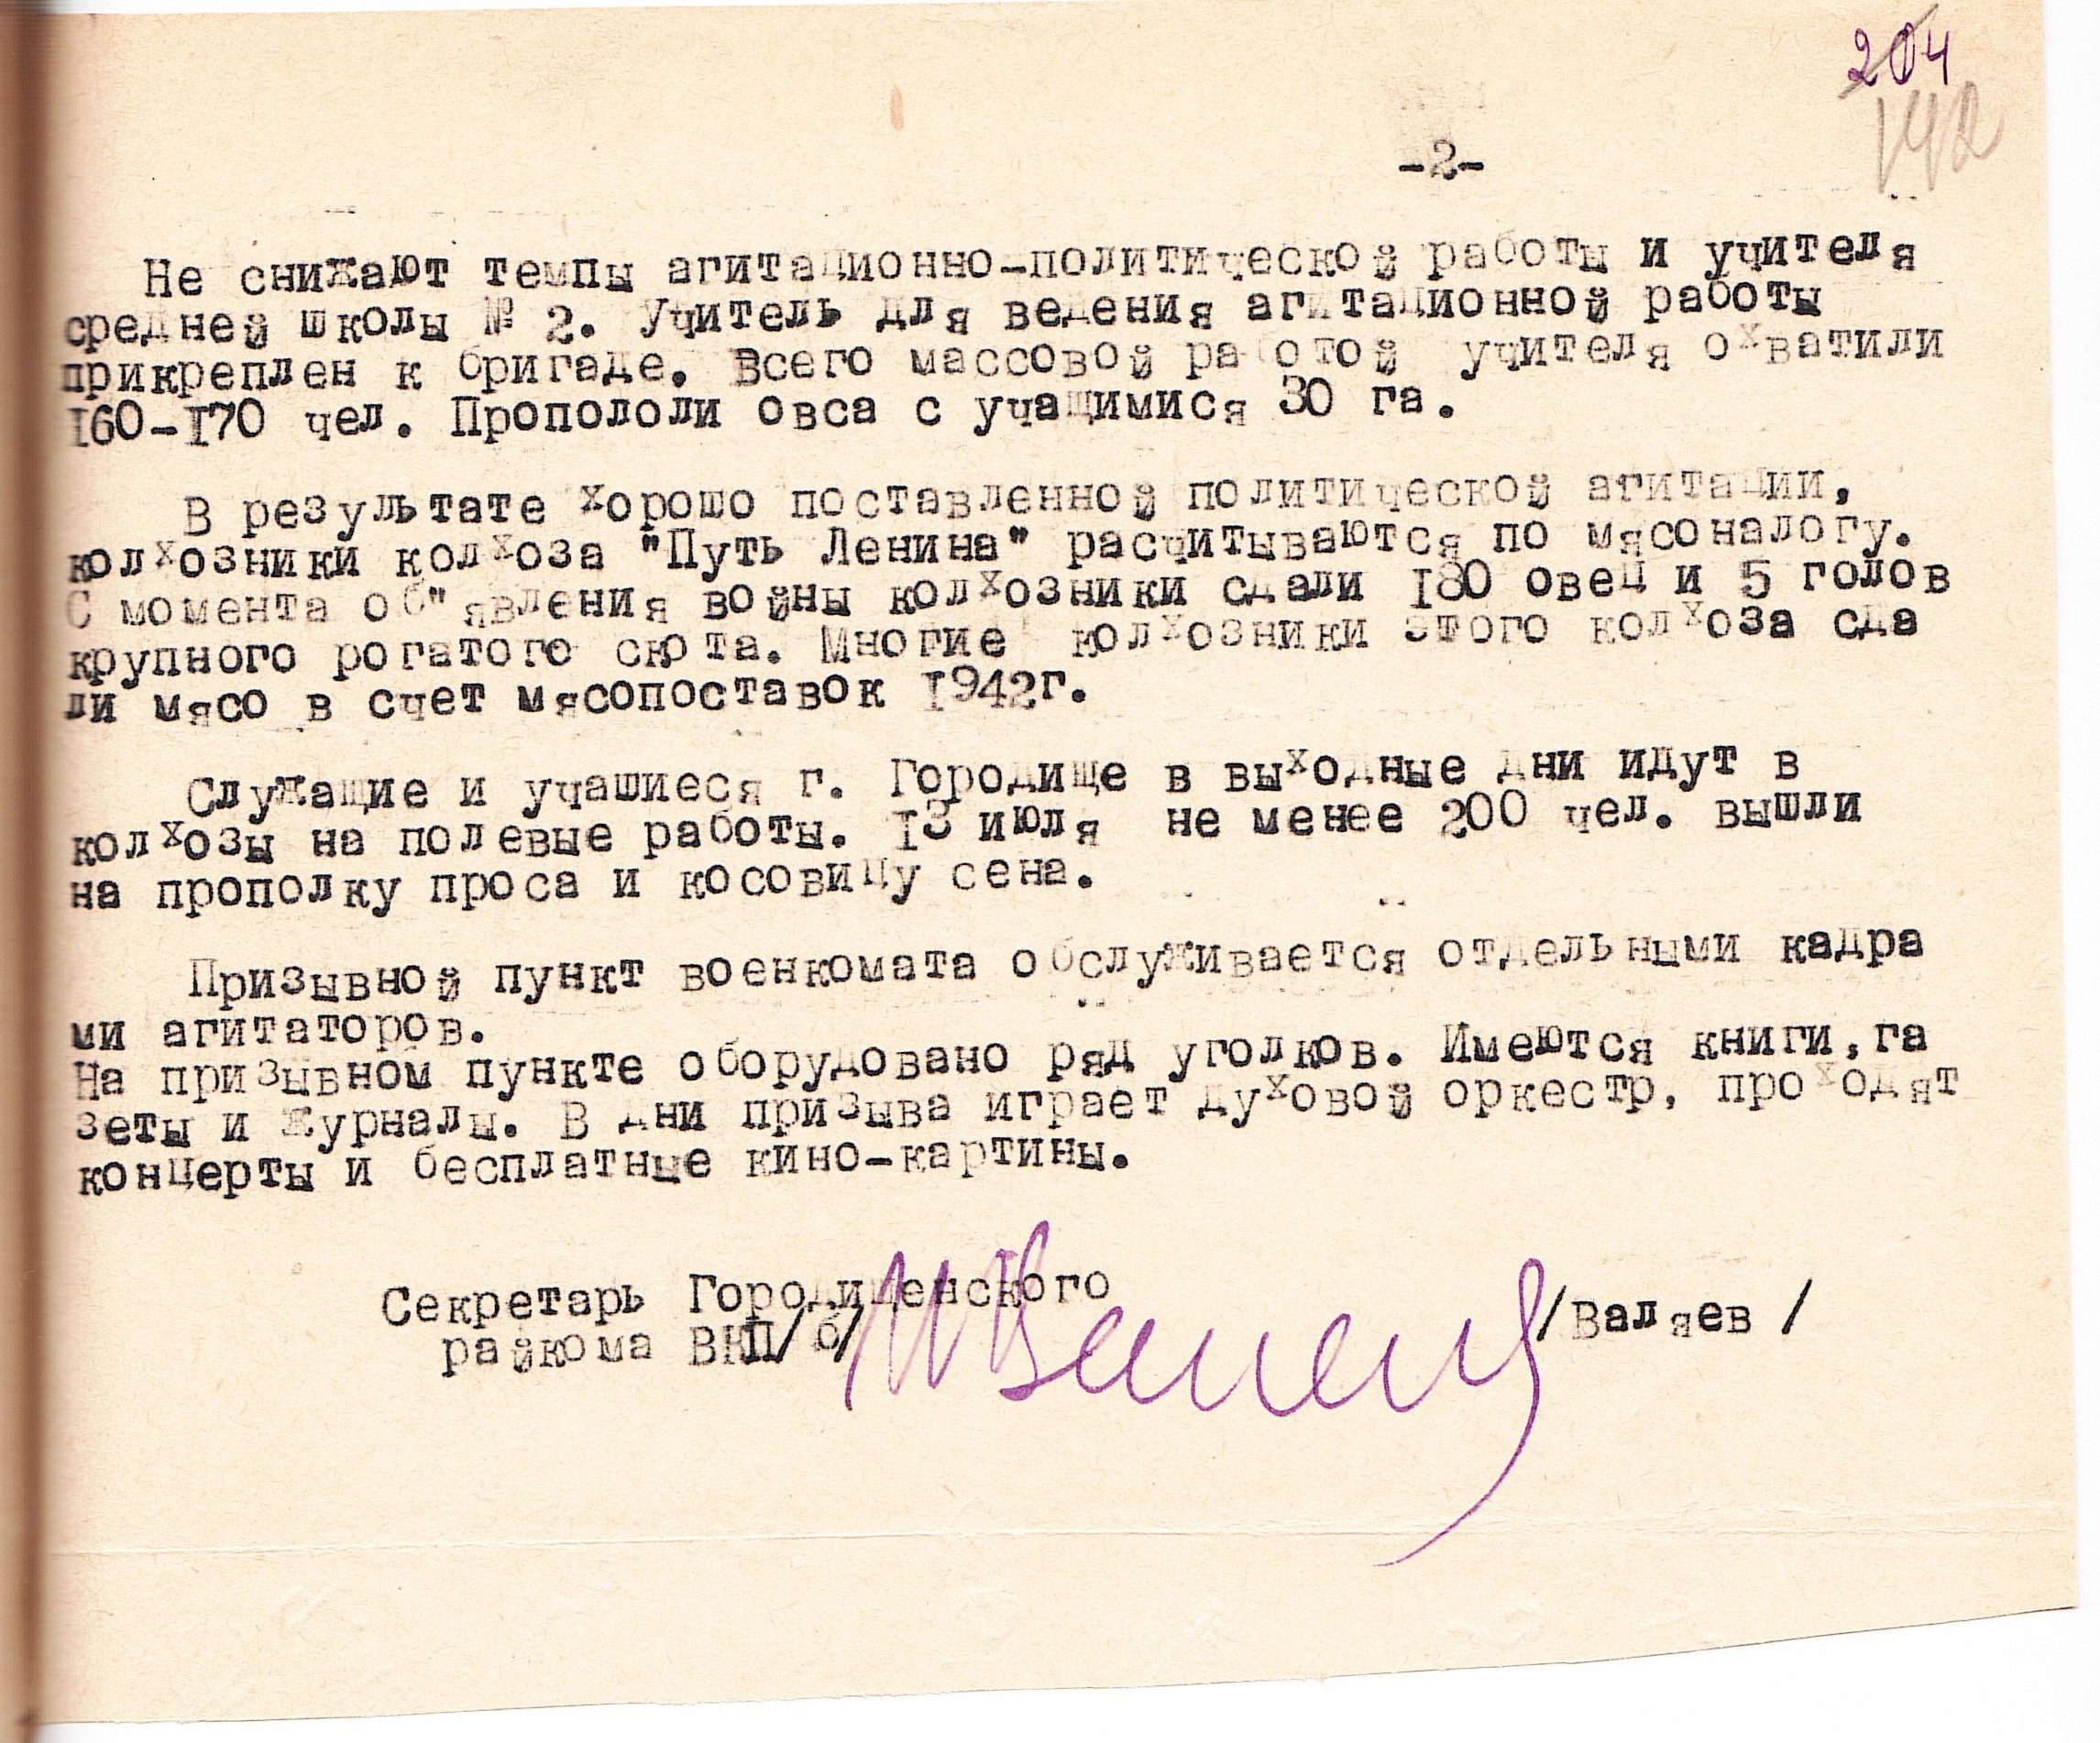 204
142
-2-
Не снижают темпы агитационно-политической работы и учителя
средней школы № 2. Учитель для ведения агитационной работы
прикреплен к бригаде. Всего массовой работой учителя охватили
160-170 чел. Пропололи овса с учащимися 30 га.
В результате хорошо поставленной политической агитации,
колхозники колхоза "Путь Ленина" расчитываются по мясоналогу.
С момента об"явления войны колхозники сдали 180 овец и 5 голов
крупного рогатого скота. Многие колхозники этого колхоза сда
ли мясо в счет мясопоставок 1942г.
Служащие и учашиеся г. Городище в выходные дни идут в
колхозы на полевые работы. 13 июля не менее 200 чел. вышли
на прополку проса и косовицу сена.
Призывной пункт военкомата обслуживается отдельными кадра
ми агитаторов.
На призывном пункте оборудовано ряд уголков. Имеются книги,га
зеты и журналы. В дни призыва играет духовой оркестр, проходят
концерты и бесплатные кино-картины.
Секретарь Городищенского
райкома ВКП/б/ /Валяев/